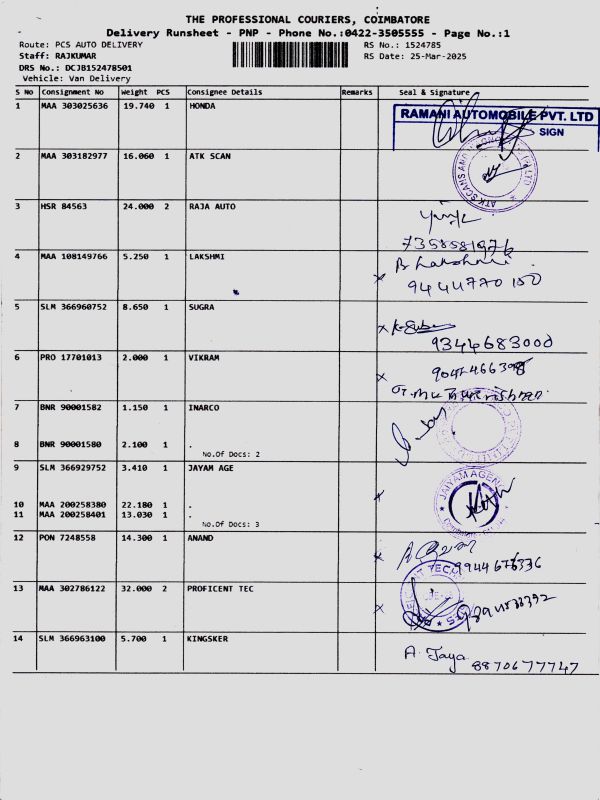 THE PROFESSIONAL COURIERS, COIMBATORE
Delivery Runsheet - PNP - Phone No.:0422-3505555 - Page No.:1
Route: PCS AUTO DELIVERY RS No.: 1524785
Staff: RAJKUMAR RS Date: 25-Mar-2025
DRS No.: DCJB152478501
Vehicle: Van Delivery
S No Consignment No Weight PCS Consignee Details Remarks Seal & Signature
1 MAA 303025636 19.740 1 HONDA
RAMANI AUTOMOBILE PVT. LTD
SIGN
2 MAA 303182977 16.060 1 ATK SCAN
3 HSR 84563 24.000 2 RAJA AUTO
7358581976
4 MAA 108149766 5.250 1 LAKSHMI B Lakshmi
9444770 150
5 SLM 366960752 8.650 1 SUGRA
9344683000
6 PRO 17701013 2.000 1 VIKRAM
7 BNR 90001582 1.150 1 INARCO
8 BNR 90001580 2.100 1 .
No.Of Docs: 2
9 SLM 366929752 3.410 1 JAYAM AGE
JAIYAM AGEN
10 MAA 200258380 22.180 1 .
11 MAA 200258401 13.030 1 .
No.Of Docs: 3
12 PON 7248558 14.300 1 ANAND
9944676336
13 MAA 302786122 32.000 2 PROFICENT TEC
14 SLM 366963100 5.700 1 KINGSKER
A. Jaya 8870677747